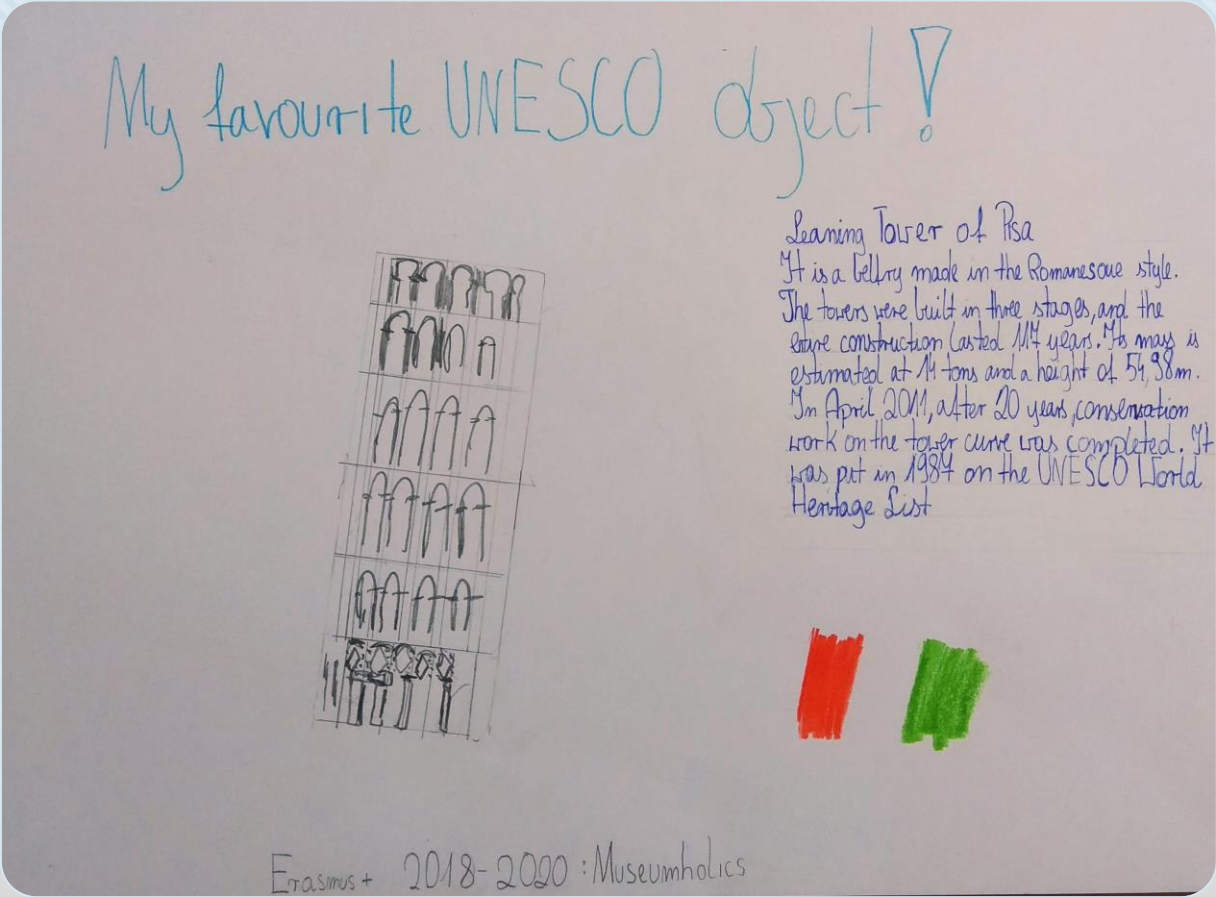 My favourite UNESCO object!
Leaning Tower of Pisa
It is a bellry made in the Romanesque style.
The towers were built in three stages, and the
entire construction lasted 117 years. Its mass is
estimated at 14 tons and a height of 54,98m.
In April 2011, after 20 years, conservation
work on the tower curve was completed. It
was put in 1987 on the UNESCO World
Heritage List
Erasmus+ 2018-2020: Museumholics